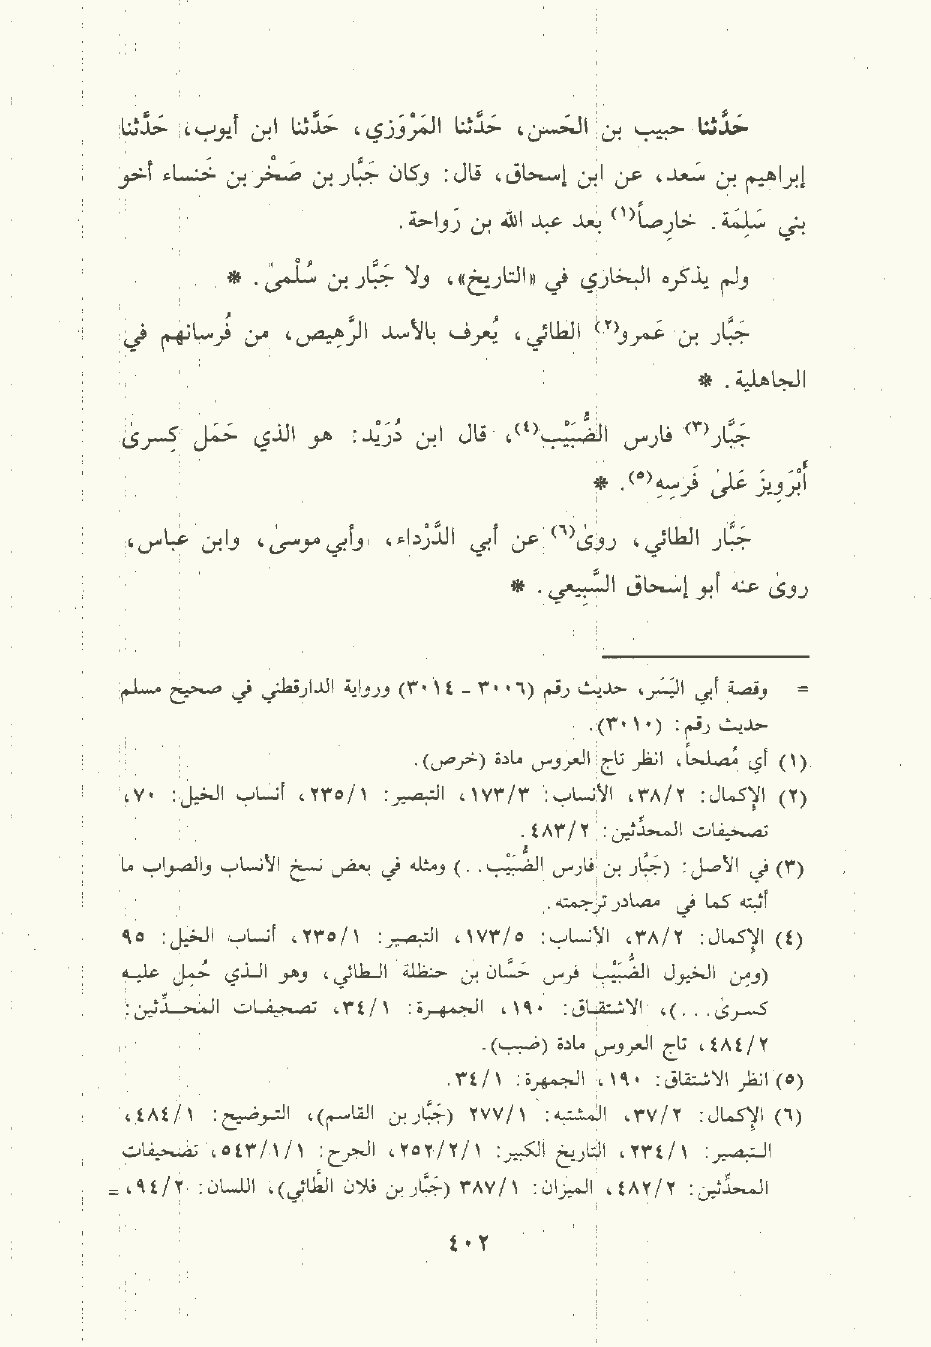 حَدَّثنا حبيب بن الحَسن، حَدَّثنا المَرْوَزي، حَدَّثنا ابن أيوب، حَدَّثنا
إبراهيم بن سَعد، عن ابن إسحاق، قال: وكان جَبَّار بن صَخْر بن خَنساء أخو
بني سَلِمَة. خارِصاً(١) بعد عبد الله بن رَواحة.
ولم يذكره البخاري في «التاريخ»، ولا جَبَّار بن سُلْمىٰ. *
جَبَّار بن عَمرو(٢) الطائي، يُعرف بالأسد الرَّهِيص، من فُرسانهم في
الجاهلية. *
جَبَّار(٣) فارس الضُّبَيْب(٤)، قال ابن دُرَيْد: هو الذي حَمَل كِسرىٰ
أَبْرَوِيزَ عَلىٰ فَرسِهِ(٥). *
جَبَّار الطائي، روىٰ(٦) عن أبي الدَّرْداء، وأبي موسىٰ، وابن عباس،
روىٰ عنه أبو إسحاق السَّبِيعي. *
= وقصة أبي اليَسَر، حديث رقم (٣٠٠٦ - ٣٠١٤) ورواية الدارقطني في صحيح مسلم
حديث رقم: (٣٠١٠).
(١) أي مُصلحاً، انظر تاج العروس مادة (خرص).
(٢) الإكمال: ٣٨/٢، الأنساب: ١٧٣/٣، التبصير: ٢٣٥/١، أنساب الخيل: ٧٠،
تصحيفات المحدِّثين: ٤٨٣/٢.
(٣) في الأصل: (جَبَّار بن فارس الضُّبَيْب. .) ومثله في بعض نسخ الأنساب والصواب ما
أثبته كما في مصادر ترجمته.
(٤) الإكمال: ٣٨/٢، الأنساب: ١٧٣/٥، التبصير: ٢٣٥/١، أنساب الخيل: ٩٥
(ومِن الخيول الضُّبَيْب فرس حَسَّان بن حنظلة الطائي، وهو الذي حُمِل عليه
كسرىٰ. . .)، الاشتقاق: ١٩٠، الجمهرة: ٣٤/١، تصحيفات المحدِّثين:
٤٨٤/٢، تاج العروس مادة (ضبب).
(٥) انظر الاشتقاق: ١٩٠، الجمهرة: ٣٤/١.
(٦) الإكمال: ٣٧/٢، المشتبه: ٢٧٧/١ (جَبَّار بن القاسم)، التوضيح: ٤٨٤/١،
التبصير: ٢٣٤/١، التاريخ الكبير: ٢٥٢/٢/١، الجرح: ٥٤٣/١/١، تصحيفات
المحدِّثين: ٤٨٢/٢، الميزان: ٣٨٧/١ (جَبَّار بن فلان الطَّائي)، اللسان: ٩٤/٢، =
٤٠٢